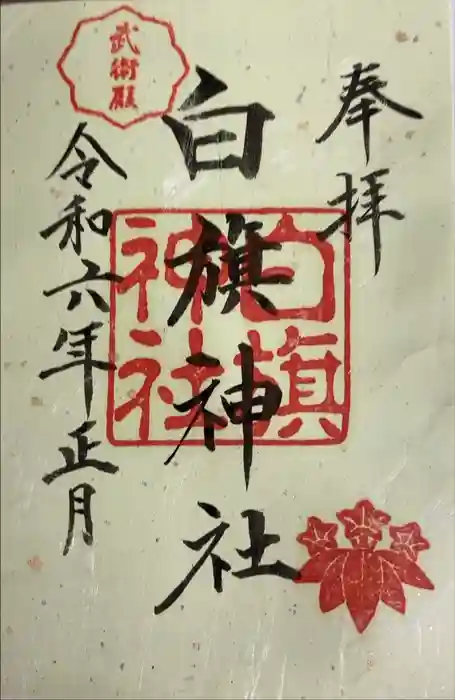 奉拝
白旗神社
白旗
神社
令和六年正月
武術殿